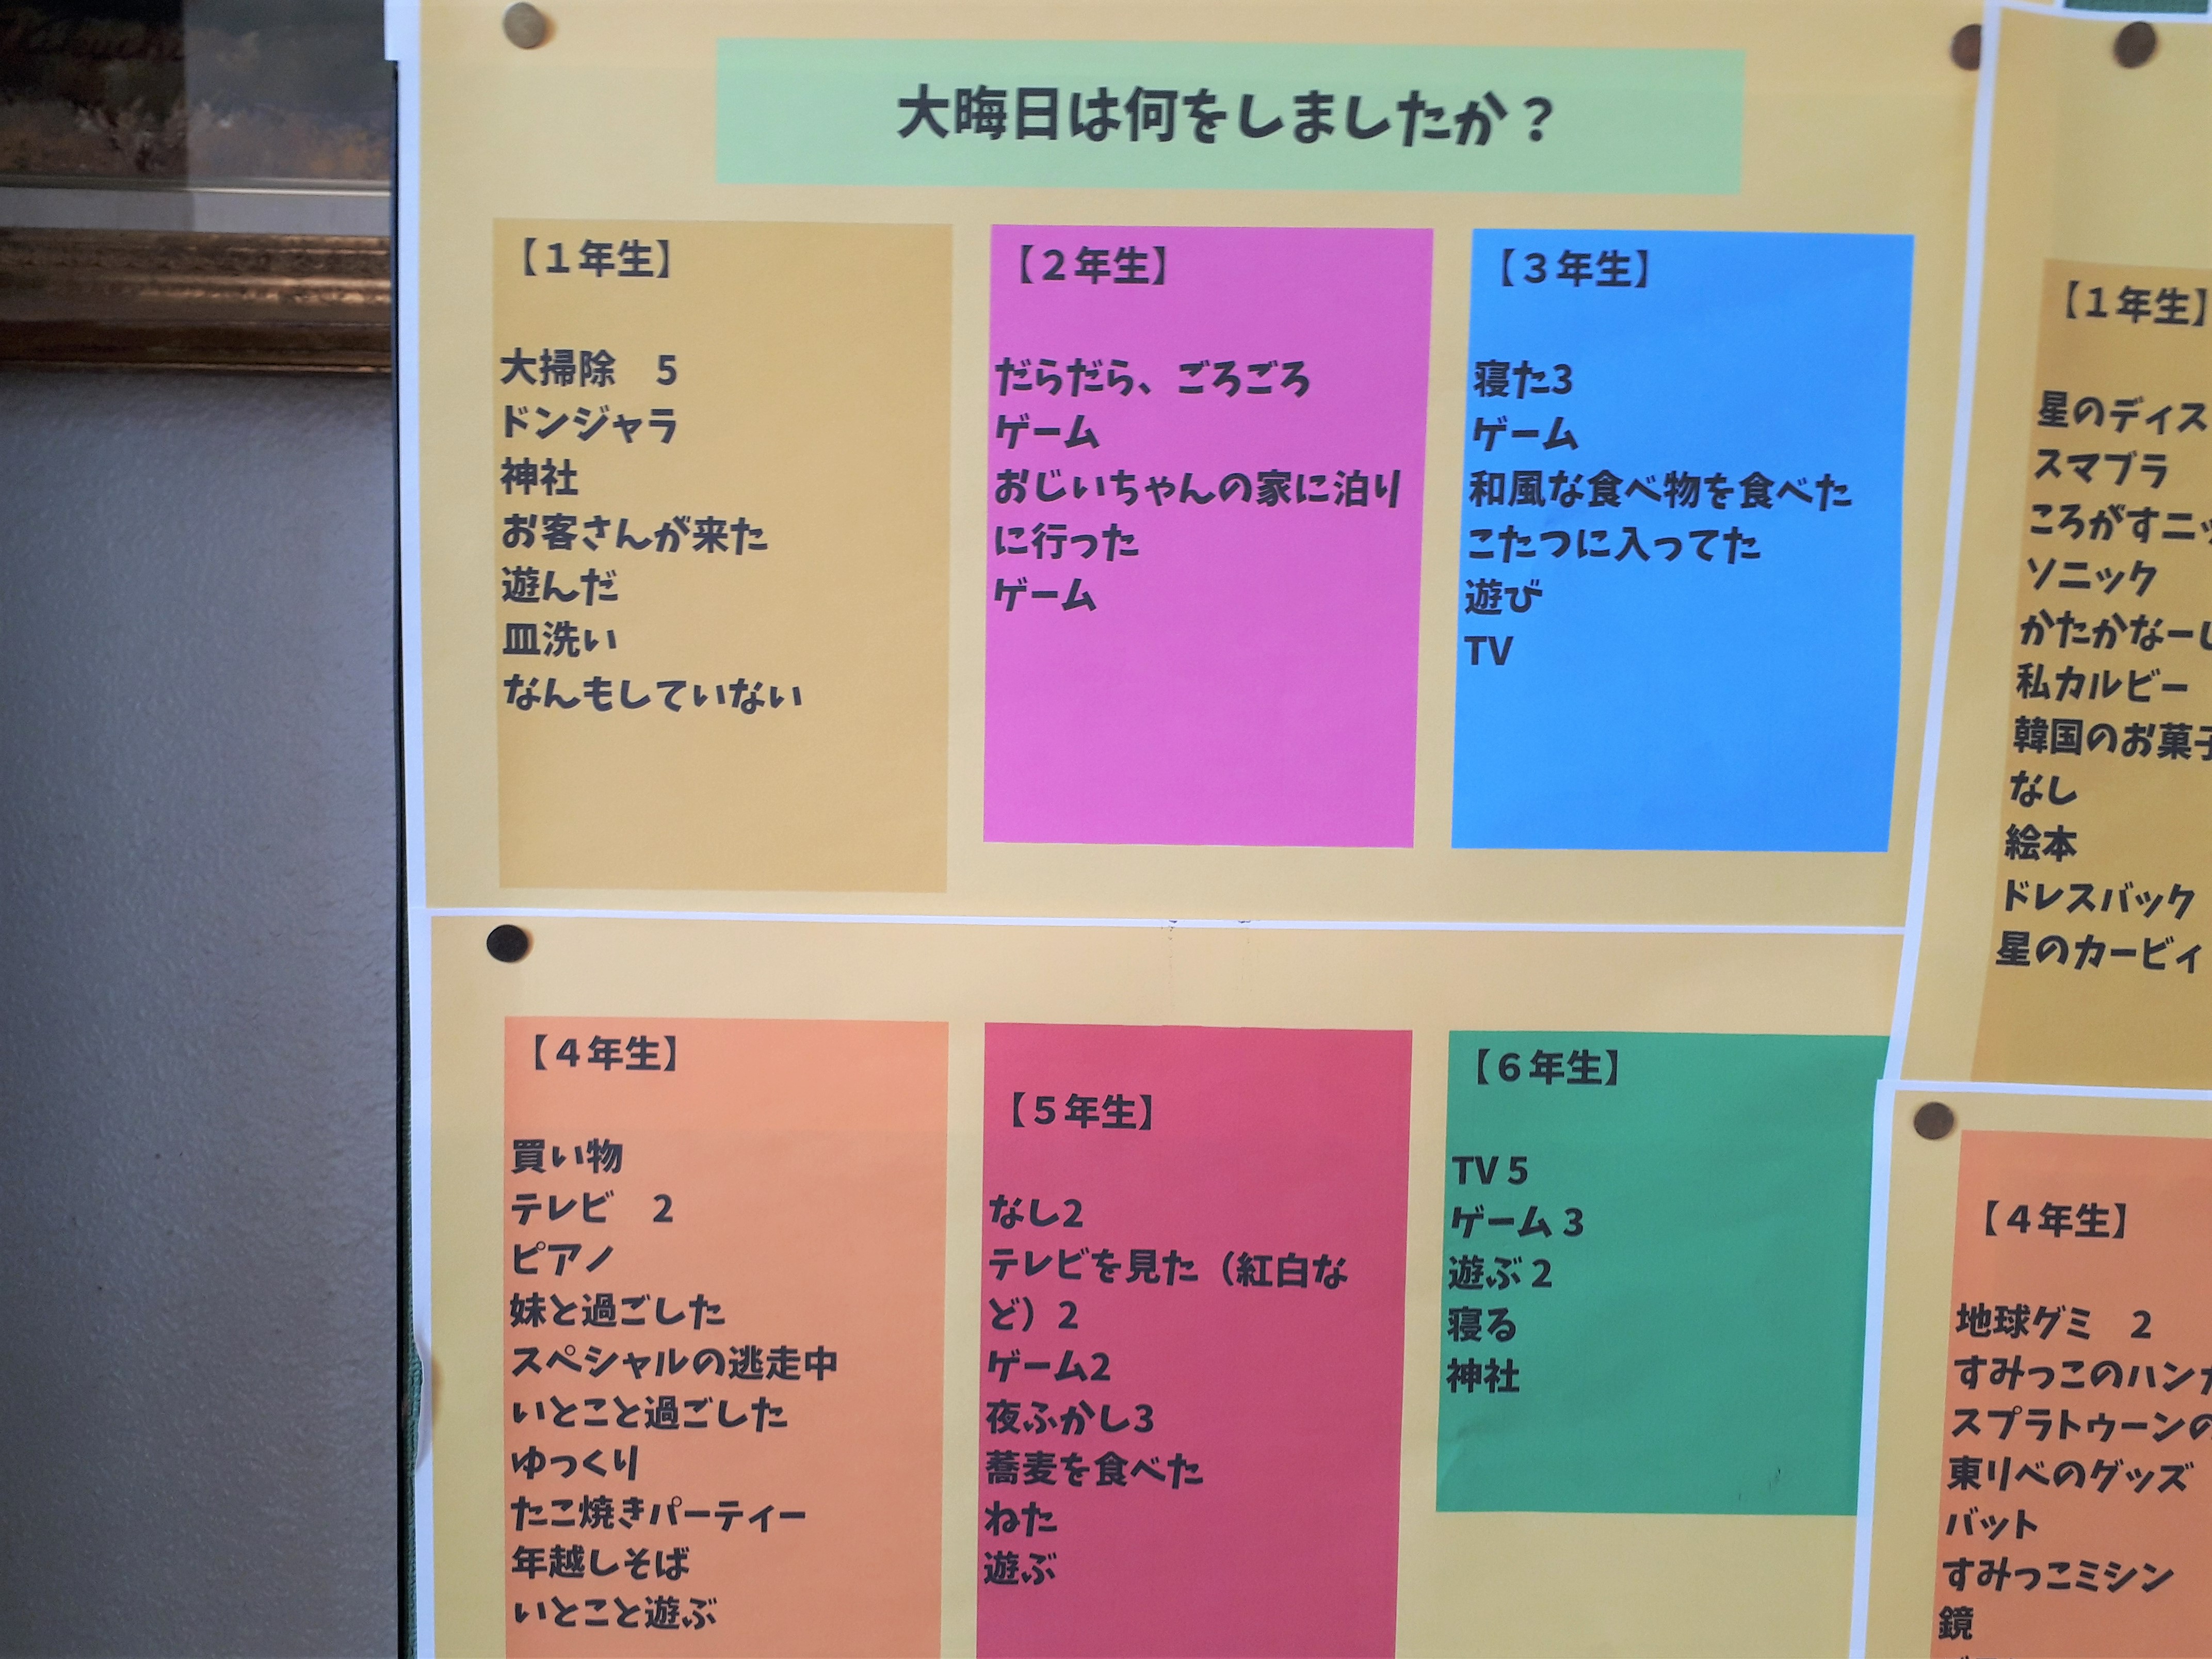 大晦日は何をしましたか？
【１年生】
大掃除　5
ドンジャラ
神社
お客さんが来た
遊んだ
皿洗い
なんもしていない
【２年生】
だらだら、ごろごろ
ゲーム
おじいちゃんの家に泊り
に行った
ゲーム
【３年生】
寝た3
ゲーム
和風な食べ物を食べた
こたつに入ってた
遊び
TV
【４年生】
買い物
テレビ　2
ピアノ
妹と過ごした
スペシャルの逃走中
いとこと過ごした
ゆっくり
たこ焼きパーティー
年越しそば
いとこと遊ぶ
【５年生】
なし2
テレビを見た（紅白な
ど）2
ゲーム2
夜ふかし3
蕎麦を食べた
ねた
遊ぶ
【６年生】
TV 5
ゲーム 3
遊ぶ 2
寝る
神社
【１年生】
星のディス
スマブラ
ころがすニッ
ソニック
かたかなーし
私カルビー
韓国のお菓子
なし
絵本
ドレスバック
星のカービィ
【４年生】
地球グミ　2
すみっこのハンカ
スプラトゥーンの
東リベのグッズ
バット
すみっこミシン
鏡